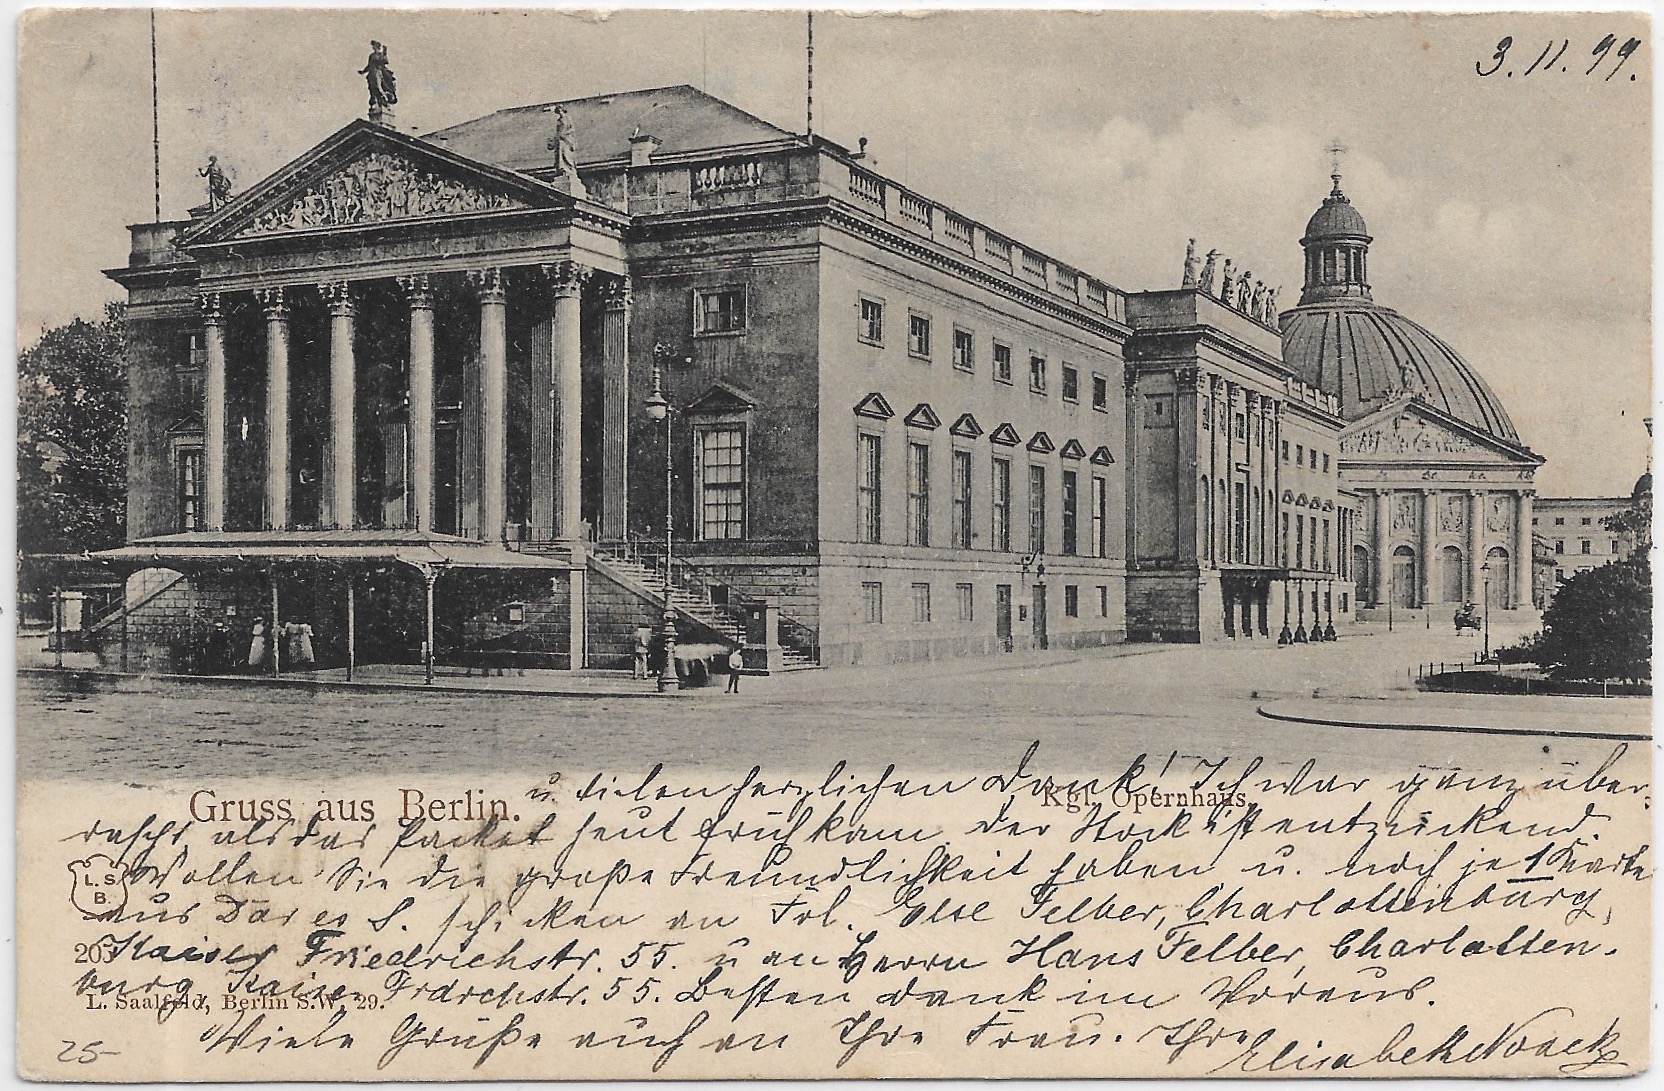 3.11.99.
Gruss aus Berlin.
Kgl. Opernhaus.
u. vielen herzlichen Dank! Ich war ganz über-
rascht, als das Packet heut früh kam der Stock ist entzückend.
Wollen Sie die große Freundlichkeit haben u. noch je 1 Karte
aus Dar es S. schicken an Frl. Else Felber, Charlottenburg,
Kaiser Friedrichstr. 55. u. an Herrn Hans Felber, Charlotten-
burg Kaiser Frdrchstr. 55. Besten Dank im Voraus.
Viele Grüße auch an Ihre Frau. Ihre
Elisabeth Noack
L. S.
B.
203
L. Saalfeld, Berlin S.W. 29.
25-